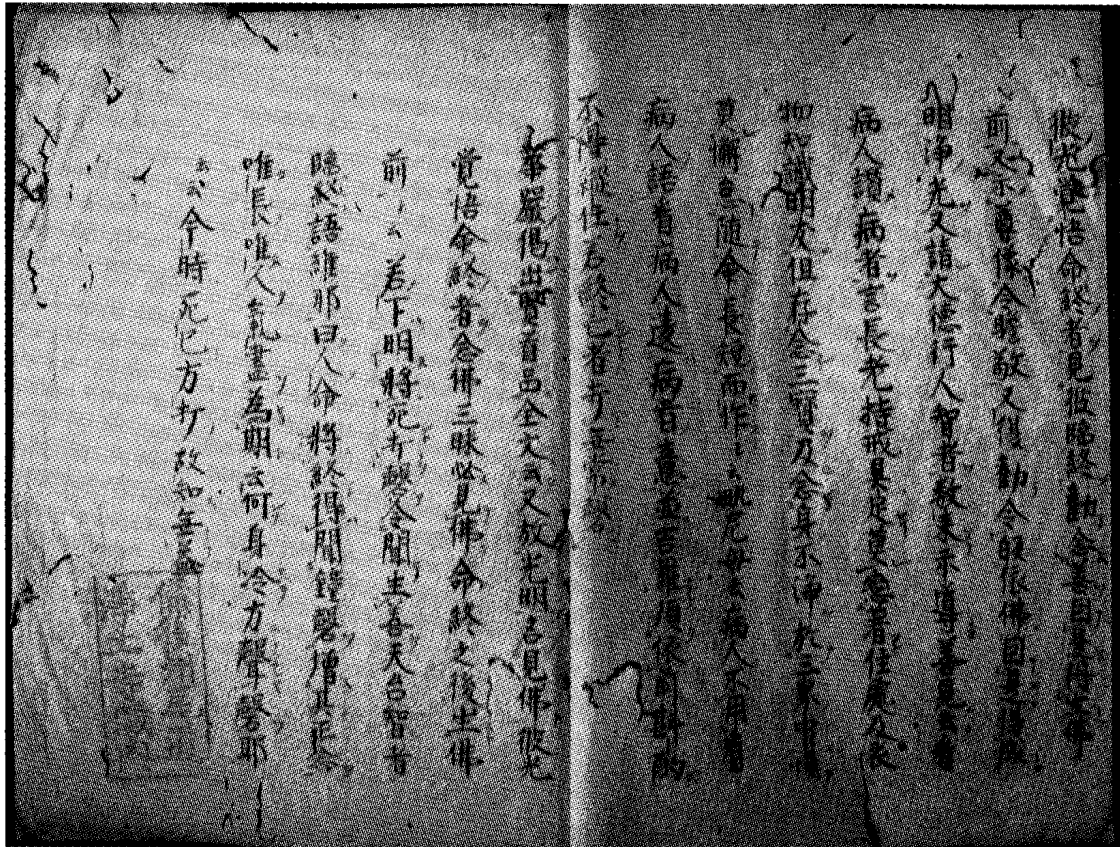 彼光覺悟命終者見彼臨終勸念善因是得生佛
前又示尊像令瞻敬又復勸令歸依佛因是得成
明淨光又請大德行人智者教來示導善惡去看
病人讚病者言長老持戒具足莫愁看住處及衣
物知識朋友但存念三寶及念身不淨於三界中慎
莫懈怠隨命長短而作之云毘尼母云病人不用看
病人語看病人違病者意並吉羅須
不得縱任若終已者打無常磬
華嚴偈出賢首品全文云又放光明名見佛彼光
覺悟命終者念佛三昧必見佛命終之後生佛
前云云若下明將死打磬令聞生善天台智者
臨終語維那曰人命將終得聞鐘磬增其正念
唯長唯久氣盡為期云何身冷方聲磬耶
云云今時死已方打故如無益